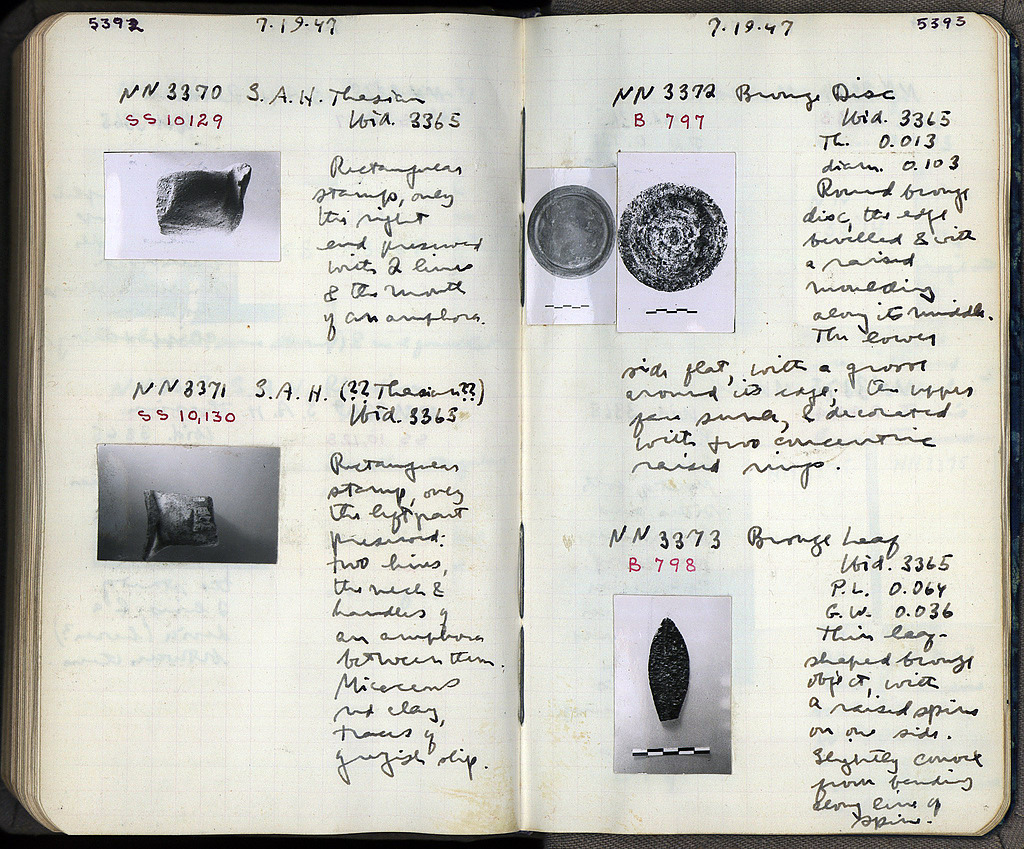 5392
7.19.47
NN 3370 S.A.H. Thasian
SS 10129 Ibid. 3365
Rectangular
stamp, only
the right
end preserved
with 2 lines
& the mouth
of an amphora.
NN 3371 S.A.H. (?? Thasian ??)
SS 10,130 Ibid. 3365
Rectangular
stamp, only
the left part
preserved:
two lines,
the neck &
handles of
an amphora
between them.
Micaceous
red clay,
traces of
grayish slip.
7.19.47
5393
NN 3372 Bronze Disc
B 797 Ibid. 3365
Th. 0.013
diam. 0.103
Round bronze
disc, the edge
bevelled & with
a raised
moulding
along its middle.
The lower
side flat, with a groove
around its edge; the upper
face, & decorated
with two concentric
raised rings.
NN 3373 Bronze Leaf
B 798 Ibid. 3365
P.L. 0.064
G.W. 0.036
Thin leaf-
shaped bronze
object, with
a raised spine
on one side.
Slightly convex
from bending
along line of
spine.